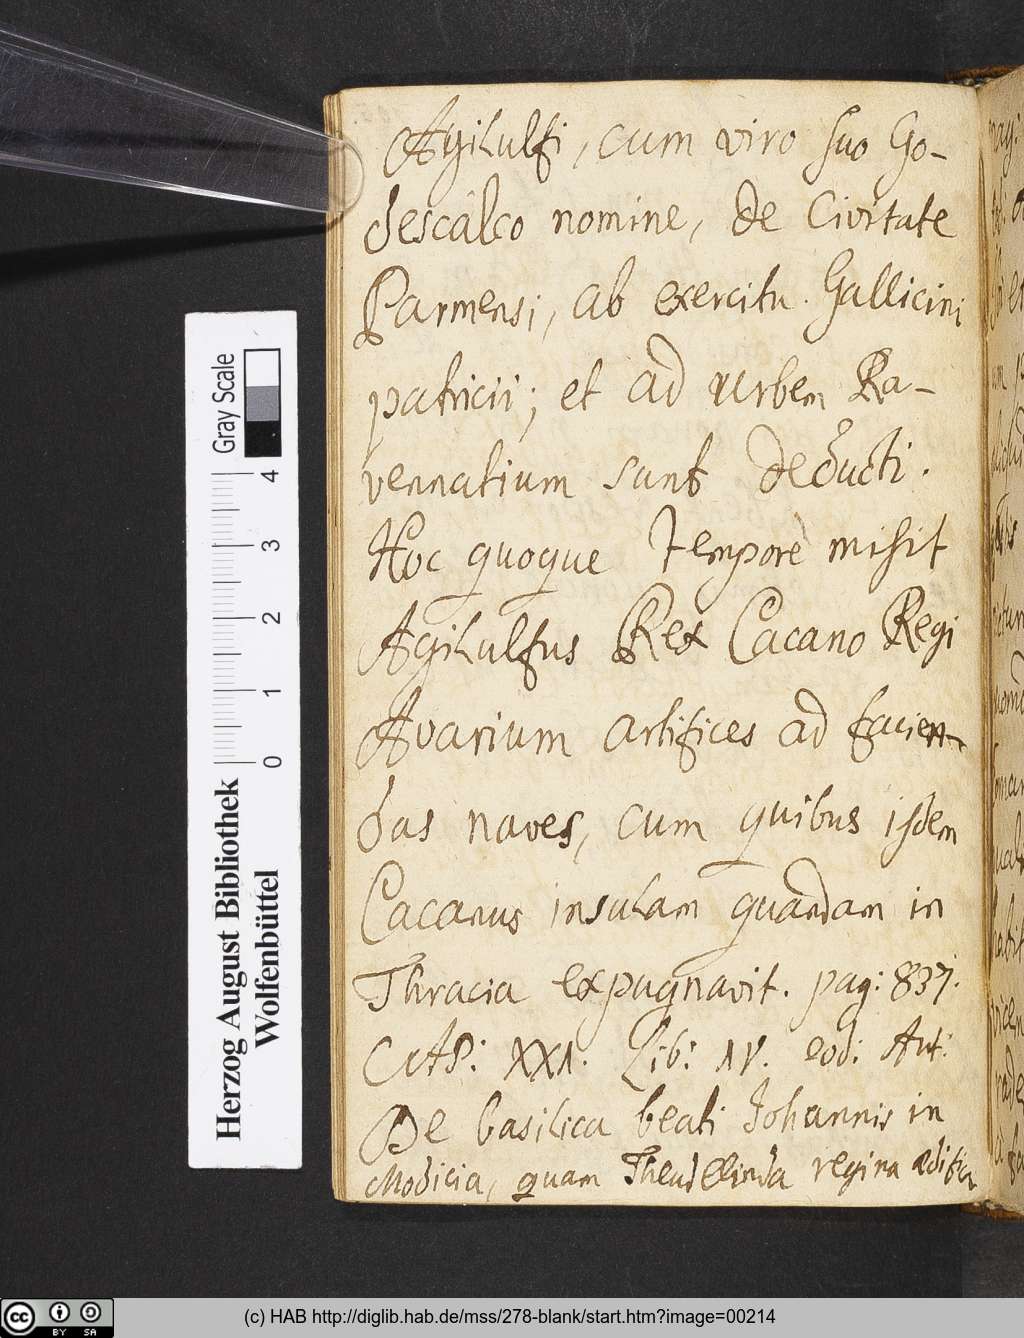 Agilulfi, cum viro suo Go-
descalco nomine, de Civitate
Parmensi, ab exercitu Gallicini
patricii; et ad urbem Ra-
vennatium sunt deducti.
Hoc quoque tempore misit
Agilulfus Rex Cacano Regi
Avarium artifices ad facien-
das naves, cum quibus isdem
Cacanus insulam quandam in
Thracia expugnavit. pag: 837.
CAP: XXI. Lib: IV. eod: Aut:
De basilica beati Johannis in
Modicia, quam Theudelinda regina ædifica
Gray Scale
4
3
2
1
0
Herzog August Bibliothek
Wolfenbüttel
cc BY SA
(c) HAB http://diglib.hab.de/mss/278-blank/start.htm?image=00214